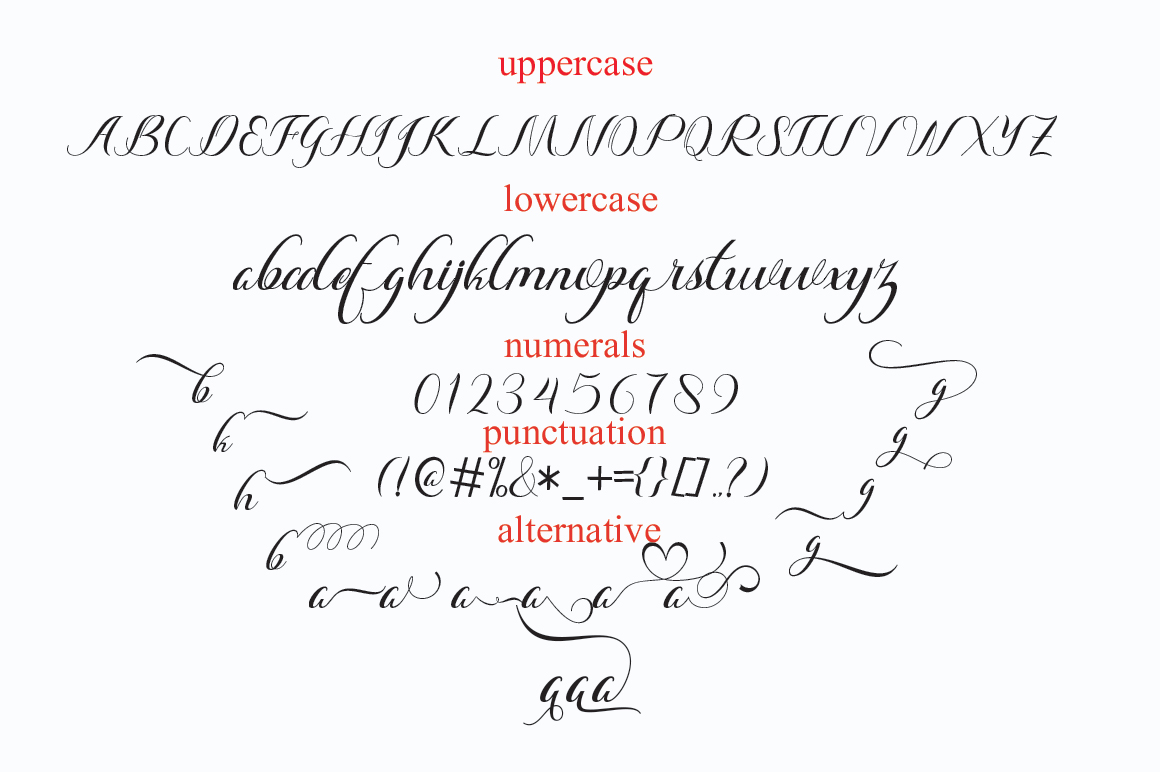 uppercase
ABCDEFGHIJKLMNOPQRSTUVWXYZ
lowercase
abcdefghijklmnopqrstuvwxyz
numerals
0123456789
b
g
punctuation
k
g
(!@#%&*_+={}[].,?)
h
g
alternative
b
g
a a a a a a
aaa